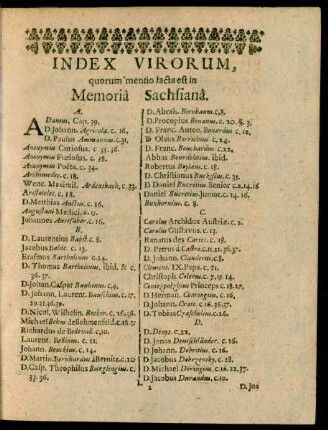 INDEX VIRORUM,
quorum mentio facta est in
Memoriâ Sachsianâ.
A.
ADamus, Cap. 39.
D Johann. Agricola. c. 16.
D. Paulus Ammannus. c. 31.
Anonymus Curiosus. c. 35. 36.
Anonymus Furiosus. c. 38.
Anonymus Poëta. c. 34.
Archimedes. c. 18.
Wenc. Maximil. Ardensbach, c. 33.
Aristoteles. c. 21.
D. Matthias c. 16.
Augustani Medici. c. 17.
Johannes c. 16.
B.
D. Laurentius c. 8.
Jacobus Balde. c. 13.
Erasmus Bartholinus c. 24.
D. Thomas Bartholinus, ibid. & c.
36. 37.
D. Johan. Caspar Bauhinus c. 9.
D. Johann. Laurent. Bauschius c. 17.
29. 21. 46. 39.
D. Nicol. Wilhelm. Becker. c. 26. 36.
Michael Behm deBehmenfeld. c. 18. 31
Richardus de Bedevod. c. 10.
Laurent. Bellinus. c. 22.
Johann. c. 14.
D. Martin. Bernhardus à Bernitz. c. 20
D. Casp. Theophilus Bierglingius. c.
33. 36.
D. Abrah. Birnbaum. c. 8.
D. Procopius Bonanus. c. 20. §. 3.
D. Franc. Anton. c. 12
D Olaus Borrichius c. 24.
D. Franc. Bouchardus. c. 22.
Abbas Bourdelotius. ibid.
Robertus c. 18.
D. Christianus Buckissius. c. 31.
D Daniel Bucretius Senior c. 2. 14. 16
Daniel Bucretius Junior. c. 14. 16.
Buxhornius. c. 8.
C.
Carolus Archidux Austriæ. c. 2.
Carolus Gustavus. c. 13.
Renatus des Cartes. c. 18.
D. Petrus á Castro. c. 11. 36. 37.
D. Johann. Clauderus. c. 8.
Clemens. IX. Papa. c. 31.
Christoph. Clerus. c. 7. 15. 14.
Princeps c. 18. 27.
D Herman. c. 16.
D. Johann. Crato. c. 16. 36. 27.
D. Tobias c. 16.
D.
D. c. 22.
D. Jonas Deutschländer. c. 16.
D. Johann. Debritius. c. 16.
D. Jacobus Dobrzensky. c. 28.
D. Michael Döringius. c. 16. 22. 37.
D. Jacobus Durandus, c. 10.
2
D. Joa